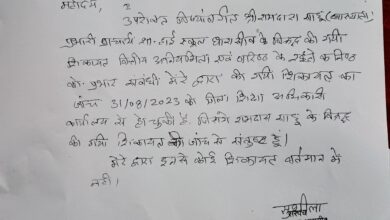 महोदय,
उपरोक्त विषयांतर्गत श्री रामदास साहू (व्याख्याता)
प्रभारी प्राचार्य शा. हाई स्कूल के विरुद्ध की गयी
शिकायत वित्तीय अनियमितता एवं वरिष्ठ के रहते कनिष्ठ
को प्रभार संबंधी मेरे द्वारा की गयी शिकायत का
जांच 31/08/2023 को जिला शिक्षा अधिकारी
कार्यालय से हो चुकी है जिसमें रामदास साहू के विरुद्ध
की गयी शिकायत की जांच से संतुष्ट हूँ।
मेरे द्वारा इनसे कोई शिकायत वर्तमान में
नहीं।
सुशीला